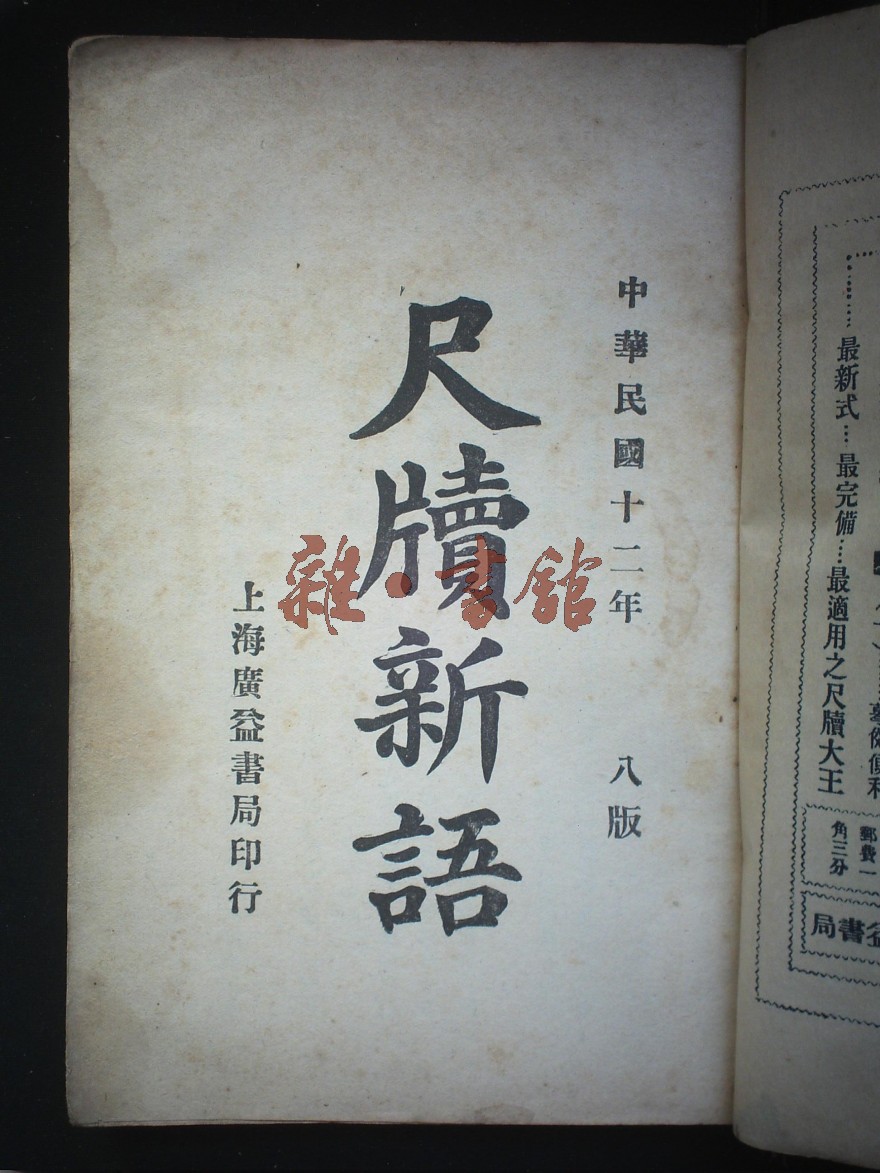 中華民國十二年 八版
尺牘新語
上海廣益書局印行
雜·書館
最新式…最完備…最適用之尺牘大王
郵費一
角三分
書局